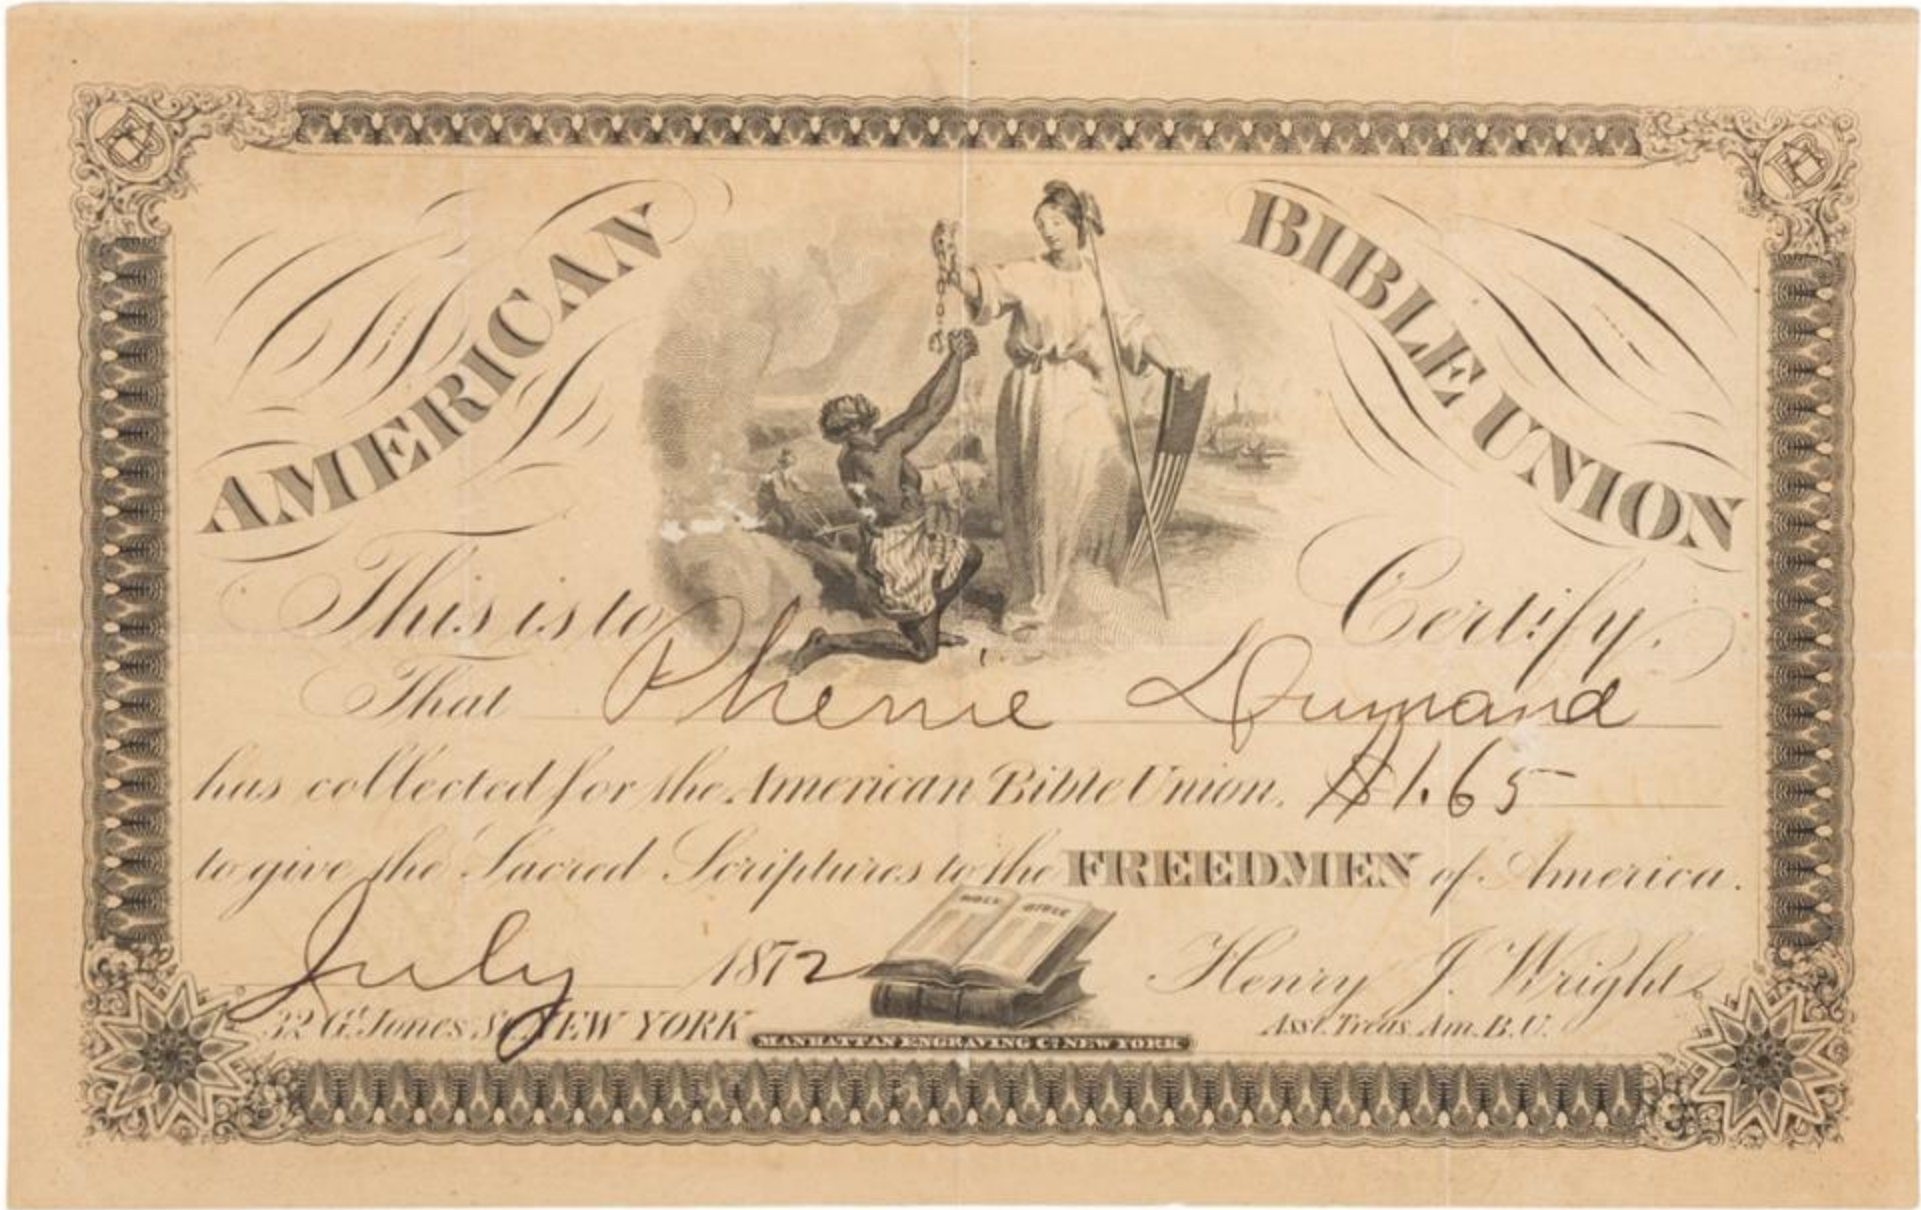 AMERICAN BIBLE UNION
This is to Certify,
That Phenie Durnand
has collected for the American Bible Union, $1.65
to give the Sacred Scriptures to the FREEDMEN of America.
HOLY BIBLE
July 1872 Henry J. Wright
32 Gt. Jones St. NEW YORK Asst. Treas. Am. B. U.
MANHATTAN ENGRAVING Co. NEW YORK